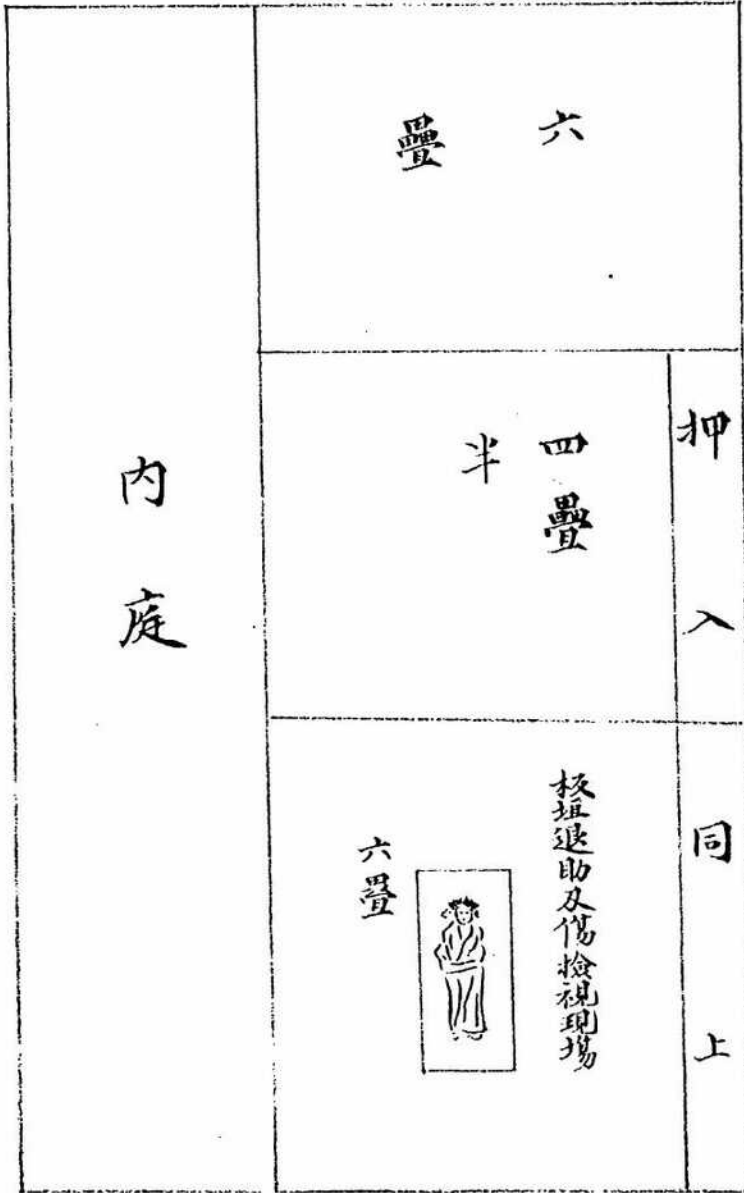 六
疊
押入
四疊
半
同上
板垣退助刄傷撿視現場
六疊
内庭